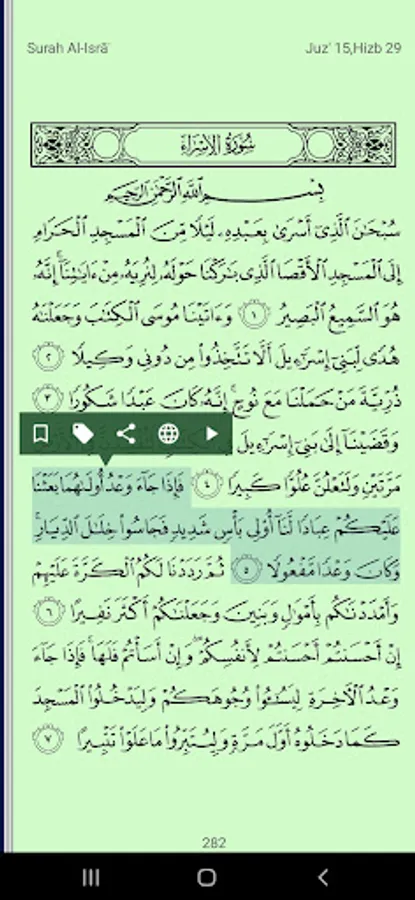 Surah Al-Isrā
Juz' 15,Hizb 29
سُورَةُ الإِسْرَاءِ
بِسْمِ ٱللَّهِ ٱلرَّحْمَٰنِ ٱلرَّحِيمِ
سُبْحَٰنَ ٱلَّذِىٓ أَسْرَىٰ بِعَبْدِهِۦ لَيْلًا مِّنَ ٱلْمَسْجِدِ ٱلْحَرَامِ
إِلَى ٱلْمَسْجِدِ ٱلْأَقْصَا ٱلَّذِى بَٰرَكْنَا حَوْلَهُۥ لِنُرِيَهُۥ مِنْ ءَايَٰتِنَآ ۚ إِنَّهُۥ
هُوَ ٱلسَّمِيعُ ٱلْبَصِيرُ ١ وَءَاتَيْنَا مُوسَى ٱلْكِتَٰبَ وَجَعَلْنَٰهُ
هُدًى لِّبَنِىٓ إِسْرَٰٓءِيلَ أَلَّا تَتَّخِذُوا۟ مِن دُونِى وَكِيلًا ٢
ذُرِّيَّةَ مَنْ حَمَلْنَا مَعَ نُوحٍ ۚ إِنَّهُۥ كَانَ عَبْدًا شَكُورًا ٣
وَقَضَيْنَآ إِلَىٰ بَنِىٓ إِسْرَٰٓءِيلَ
مَرَّتَيْنِ وَلَتَعْلُنَّ عُلُوًّا كَبِيرًا ٤ فَإِذَا جَآءَ وَعْدُ أُولَىٰهُمَا بَعَثْنَا
عَلَيْكُمْ عِبَادًا لَّنَآ أُو۟لِى بَأْسٍ شَدِيدٍ فَجَاسُوا۟ خِلَٰلَ ٱلدِّيَارِ ۚ
وَكَانَ وَعْدًا مَّفْعُولًا ٥ ثُمَّ رَدَدْنَا لَكُمُ ٱلْكَرَّةَ عَلَيْهِمْ
وَأَمْدَدْنَٰكُم بِأَمْوَٰلٍ وَبَنِينَ وَجَعَلْنَٰكُمْ أَكْثَرَ نَفِيرًا ٦
إِنْ أَحْسَنتُمْ أَحْسَنتُمْ لِأَنفُسِكُمْ ۖ وَإِنْ أَسَأْتُمْ فَلَهَا ۚ فَإِذَا جَآءَ
وَعْدُ ٱلْءَاخِرَةِ لِيَسُۥٓـُٔوا۟ وُجُوهَكُمْ وَلِيَدْخُلُوا۟ ٱلْمَسْجِدَ
كَمَا دَخَلُوهُ أَوَّلَ مَرَّةٍ وَلِيُتَبِّرُوا۟ مَا عَلَوْا۟ تَتْبِيرًا ٧
282